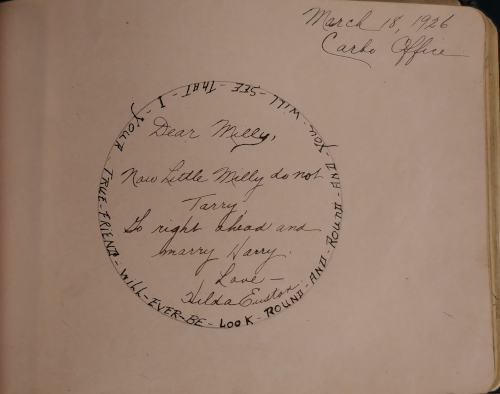 March 18, 1926
Carbo Office
Dear Milly,
Now Little Milly do not
Tarry
Go right ahead and
marry Harry.
Love –
Hilda Euston
LOOK - ROUND - AND - ROUND - AND - YOU - WILL - SEE - THAT - I - YOUR - TRUE - FRIEND - WILL - EVER - BE -